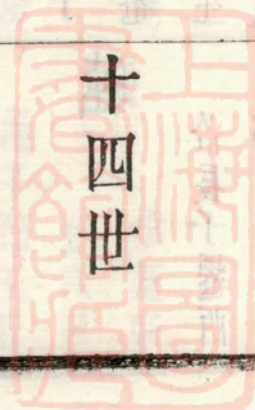 十四世